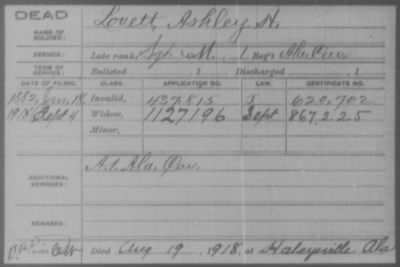 DEAD
NAME OF SOLDIER: Lovett, Ashley H.
SERVICE: Late rank, Sgt. Co. M, 1 Reg't Ala. Cav.
TERM OF SERVICE: Enlisted , 1 Discharged , 1
DATE OF FILING. CLASS. APPLICATION NO. LAW. CERTIFICATE NO.
1882, Jan. 18 Invalid, 437.815 620.702
1918, Sept 4 Widow, 1127196 Sept 867.225
Minor,
ADDITIONAL SERVICES: A. 1. Ala. Cav.
REMARKS:
Died Aug 19, 1918, at Haleyville Ala